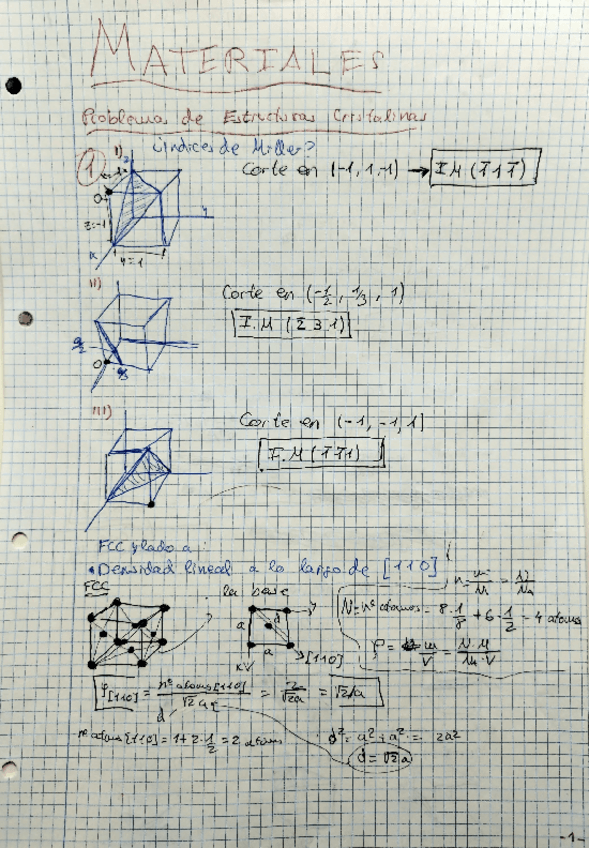 MATERIALES
Problemas de Estructuras Cristalinas
1 I) Índices de Miller?
z
Corte en (-1, 1, -1) → I.M (1̅ 1 1̅)
O
y
z=-1
x
1 y=1 1
II)
Corte en (-1/2, 1/3, 1)
I.M (2̅ 3 1)
a/2
O a/3
III)
Corte en (-1, -1, 1)
I.M (1̅ 1̅ 1)
FCC y lado a:
• Densidad lineal a lo largo de [110]
FCC
la base
n = m/M = N/Na
N = nº atomos = 8·1/8 + 6·1/2 = 4 atoms
a d y
a
x [110]
ρ = m/V = N·M/Na·V
ρ[110] = nº atoms [110]/√2 a = 2/√2a = √2/a
d
nº atoms [110] = 1+2·1/2 = 2 atoms
d² = a² + a² = 2a²
d = √2a
-1-